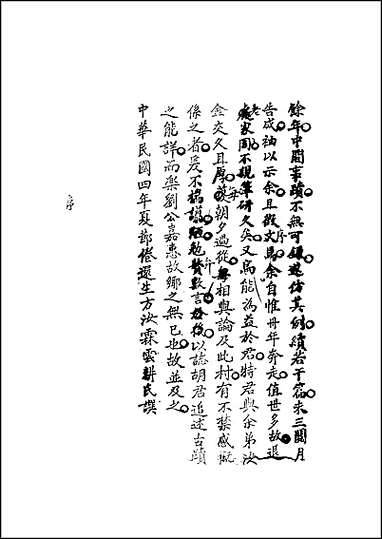 餘年中間事蹟不無可鎮遂仿其例續若干篇未三閱月
告成袖以示余且徵文焉余自惟卅年奔走值世多故退
老家周不規筆研久矣又烏能為益於君特君與余弟汝
金交久且厚每朝夕過從每相與論及此村有不禁感慨
係之者爰不揣譾陋勉贅數言於後以誌胡君追述古蹟
之能詳而樂劉公嘉惠故鄉之無已也故並及之
中華民國四年夏節倦還生方汝霖雲耕氏譔
序